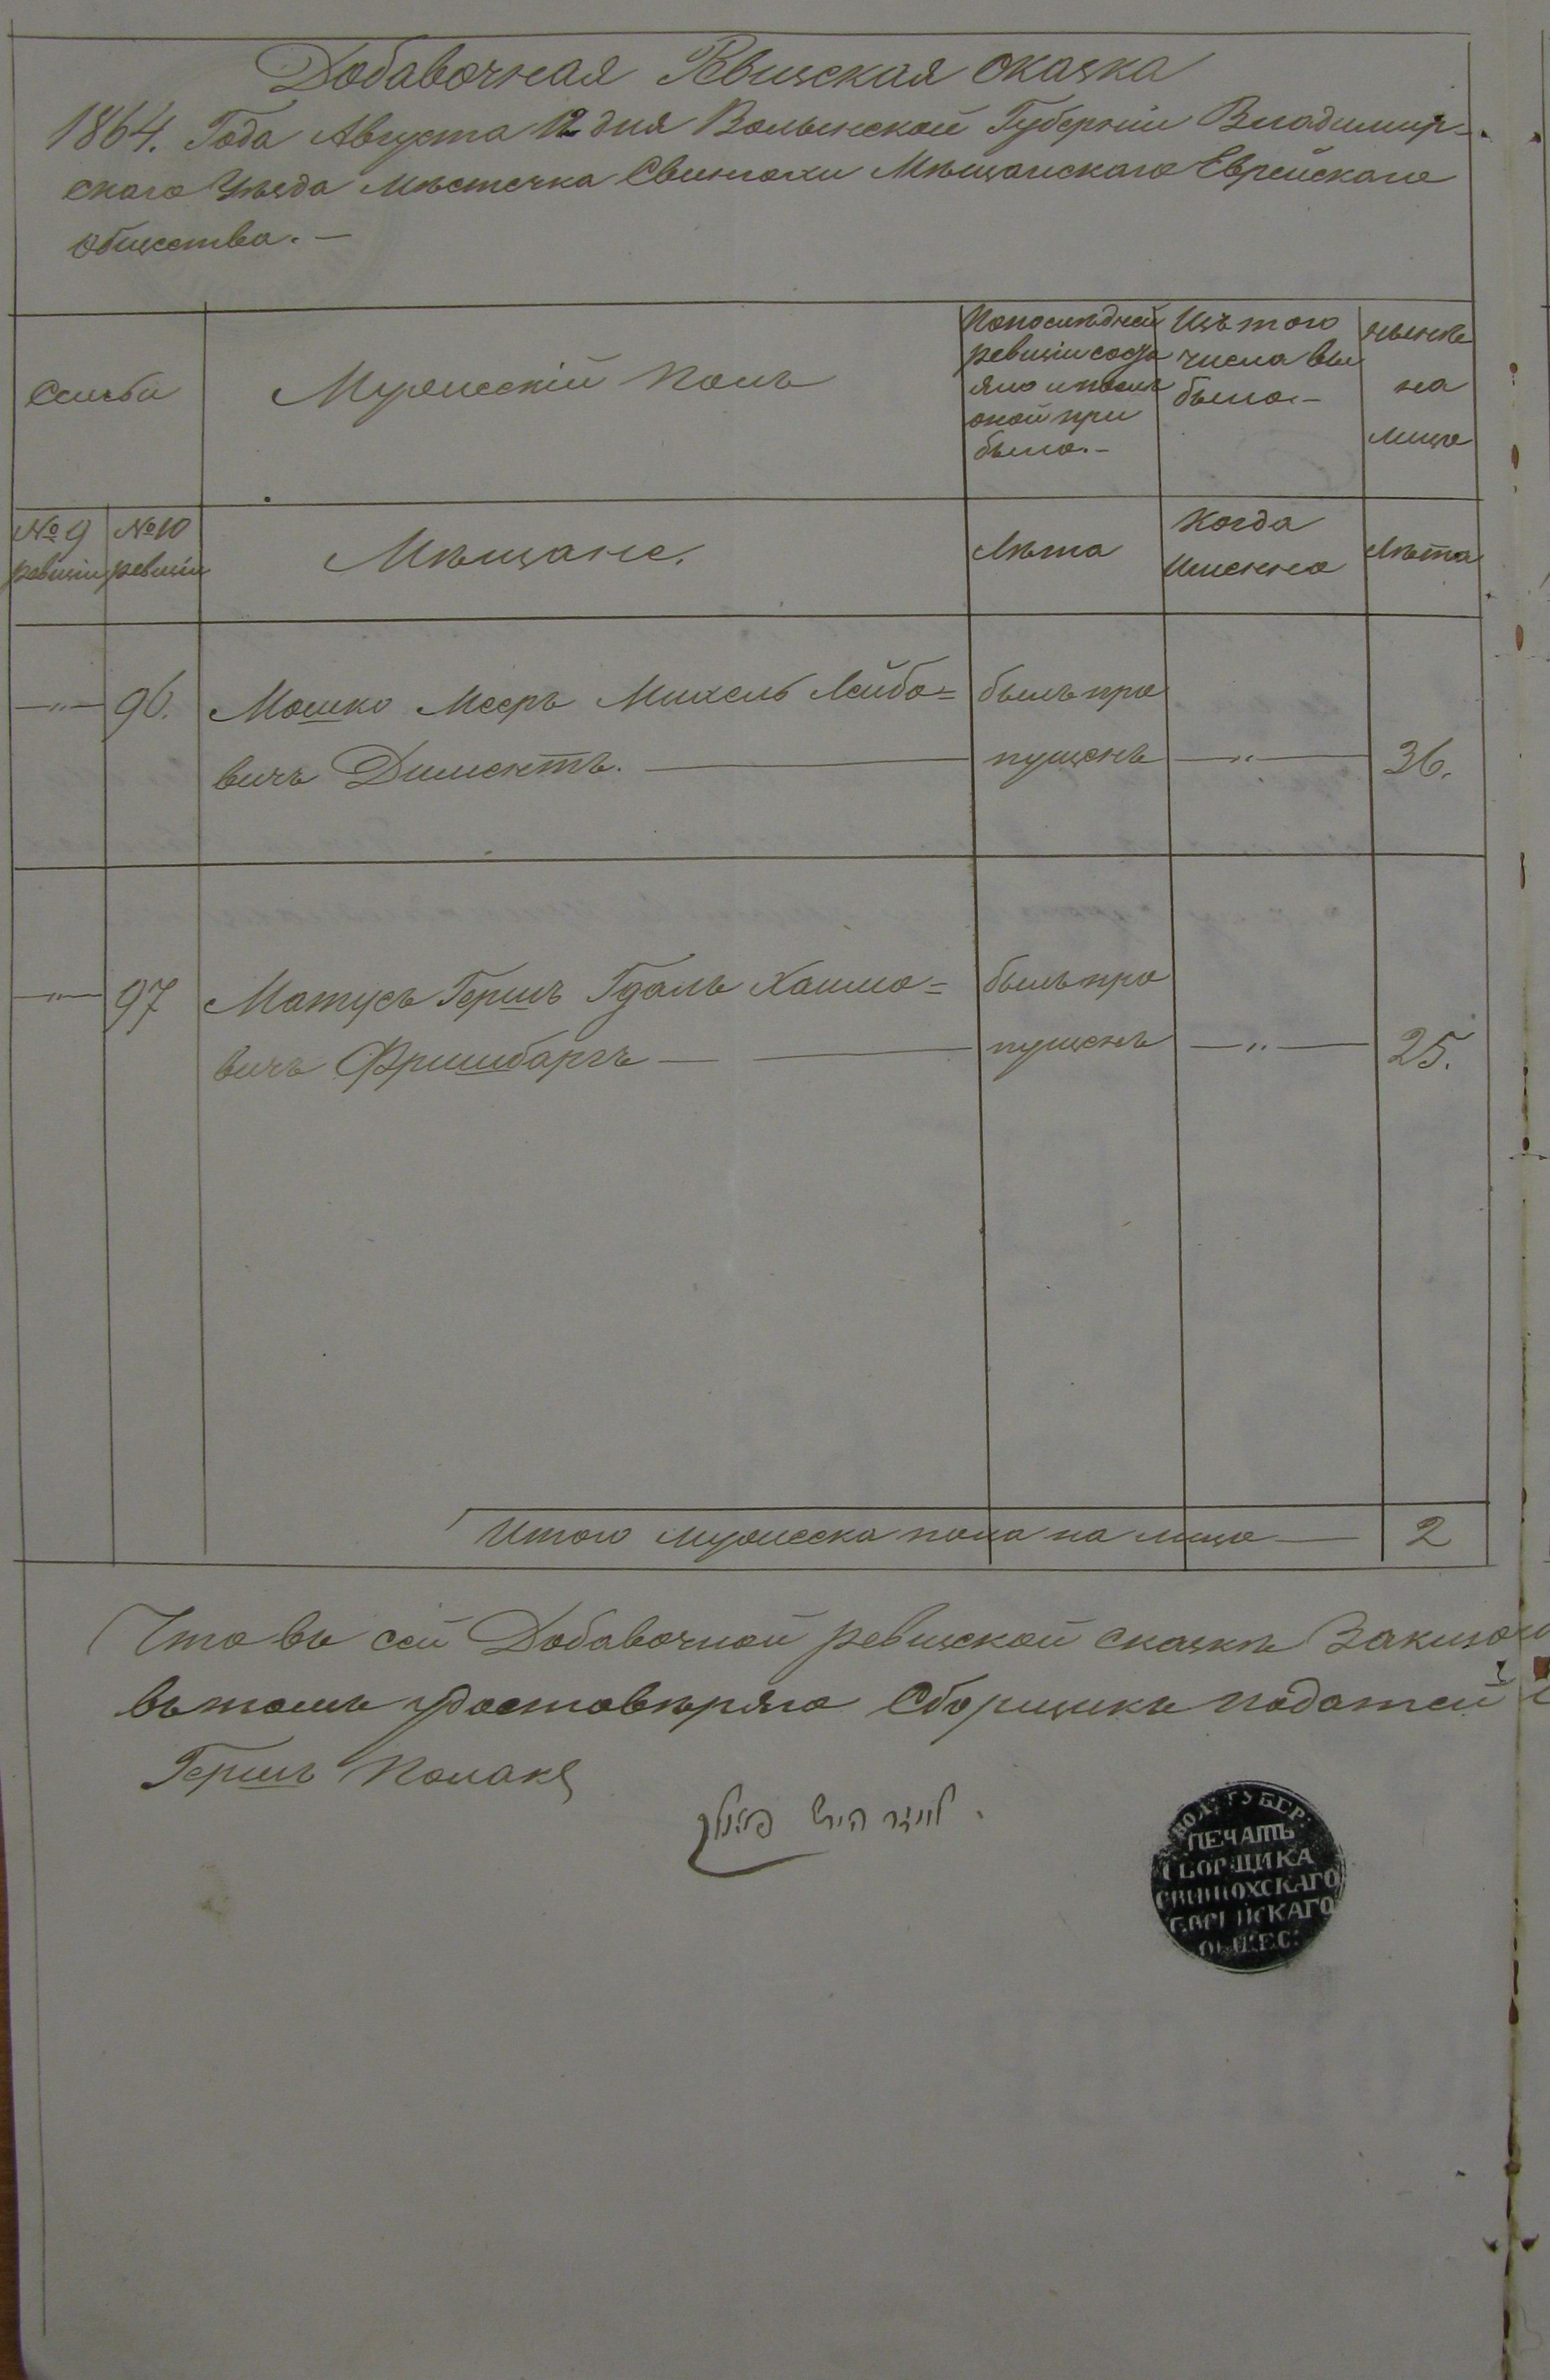 Добавочная Ревизская сказка
1864. Года Августа 12 дня Волынской Губерніи Владимир-
скаго Уѣзда Мѣстечка Свинюхи Мѣщанскаго Еврейскаго
Общества. —
Семьи
Мужескій полъ
По послѣдней
ревизіи состо
яло и послѣ
оной при
было. –
Изъ того
числа вы
было. –
нынѣ
на
лицо
№ 9
ревизіи
№ 10
ревизіи
Мѣщане.
Лѣта
Когда
Именно
Лѣта
—„— 96. Мошко Мееръ Михель Лейбо=
вичъ Диментъ. —
былъ про
пущенъ —„— 36.
—„— 97 Матусъ Гершъ Гдаль Хаимо=
вичъ Фришбаргъ —
былъ про
пущенъ —„— 25.
Итого мужеска пола на лицо — 2
Что въ сей Добавочной ревизской сказкѣ
въ томъ удостовѣряю Сборщикъ податей
Гершъ Полакъ
הירש פאלאק
ВОЛ: ГУБЕР:
ПЕЧАТЬ
СБОРЩИКА
СВИНЮХСКАГО
ЕВРЕЙСКАГО
ОБЩЕС: